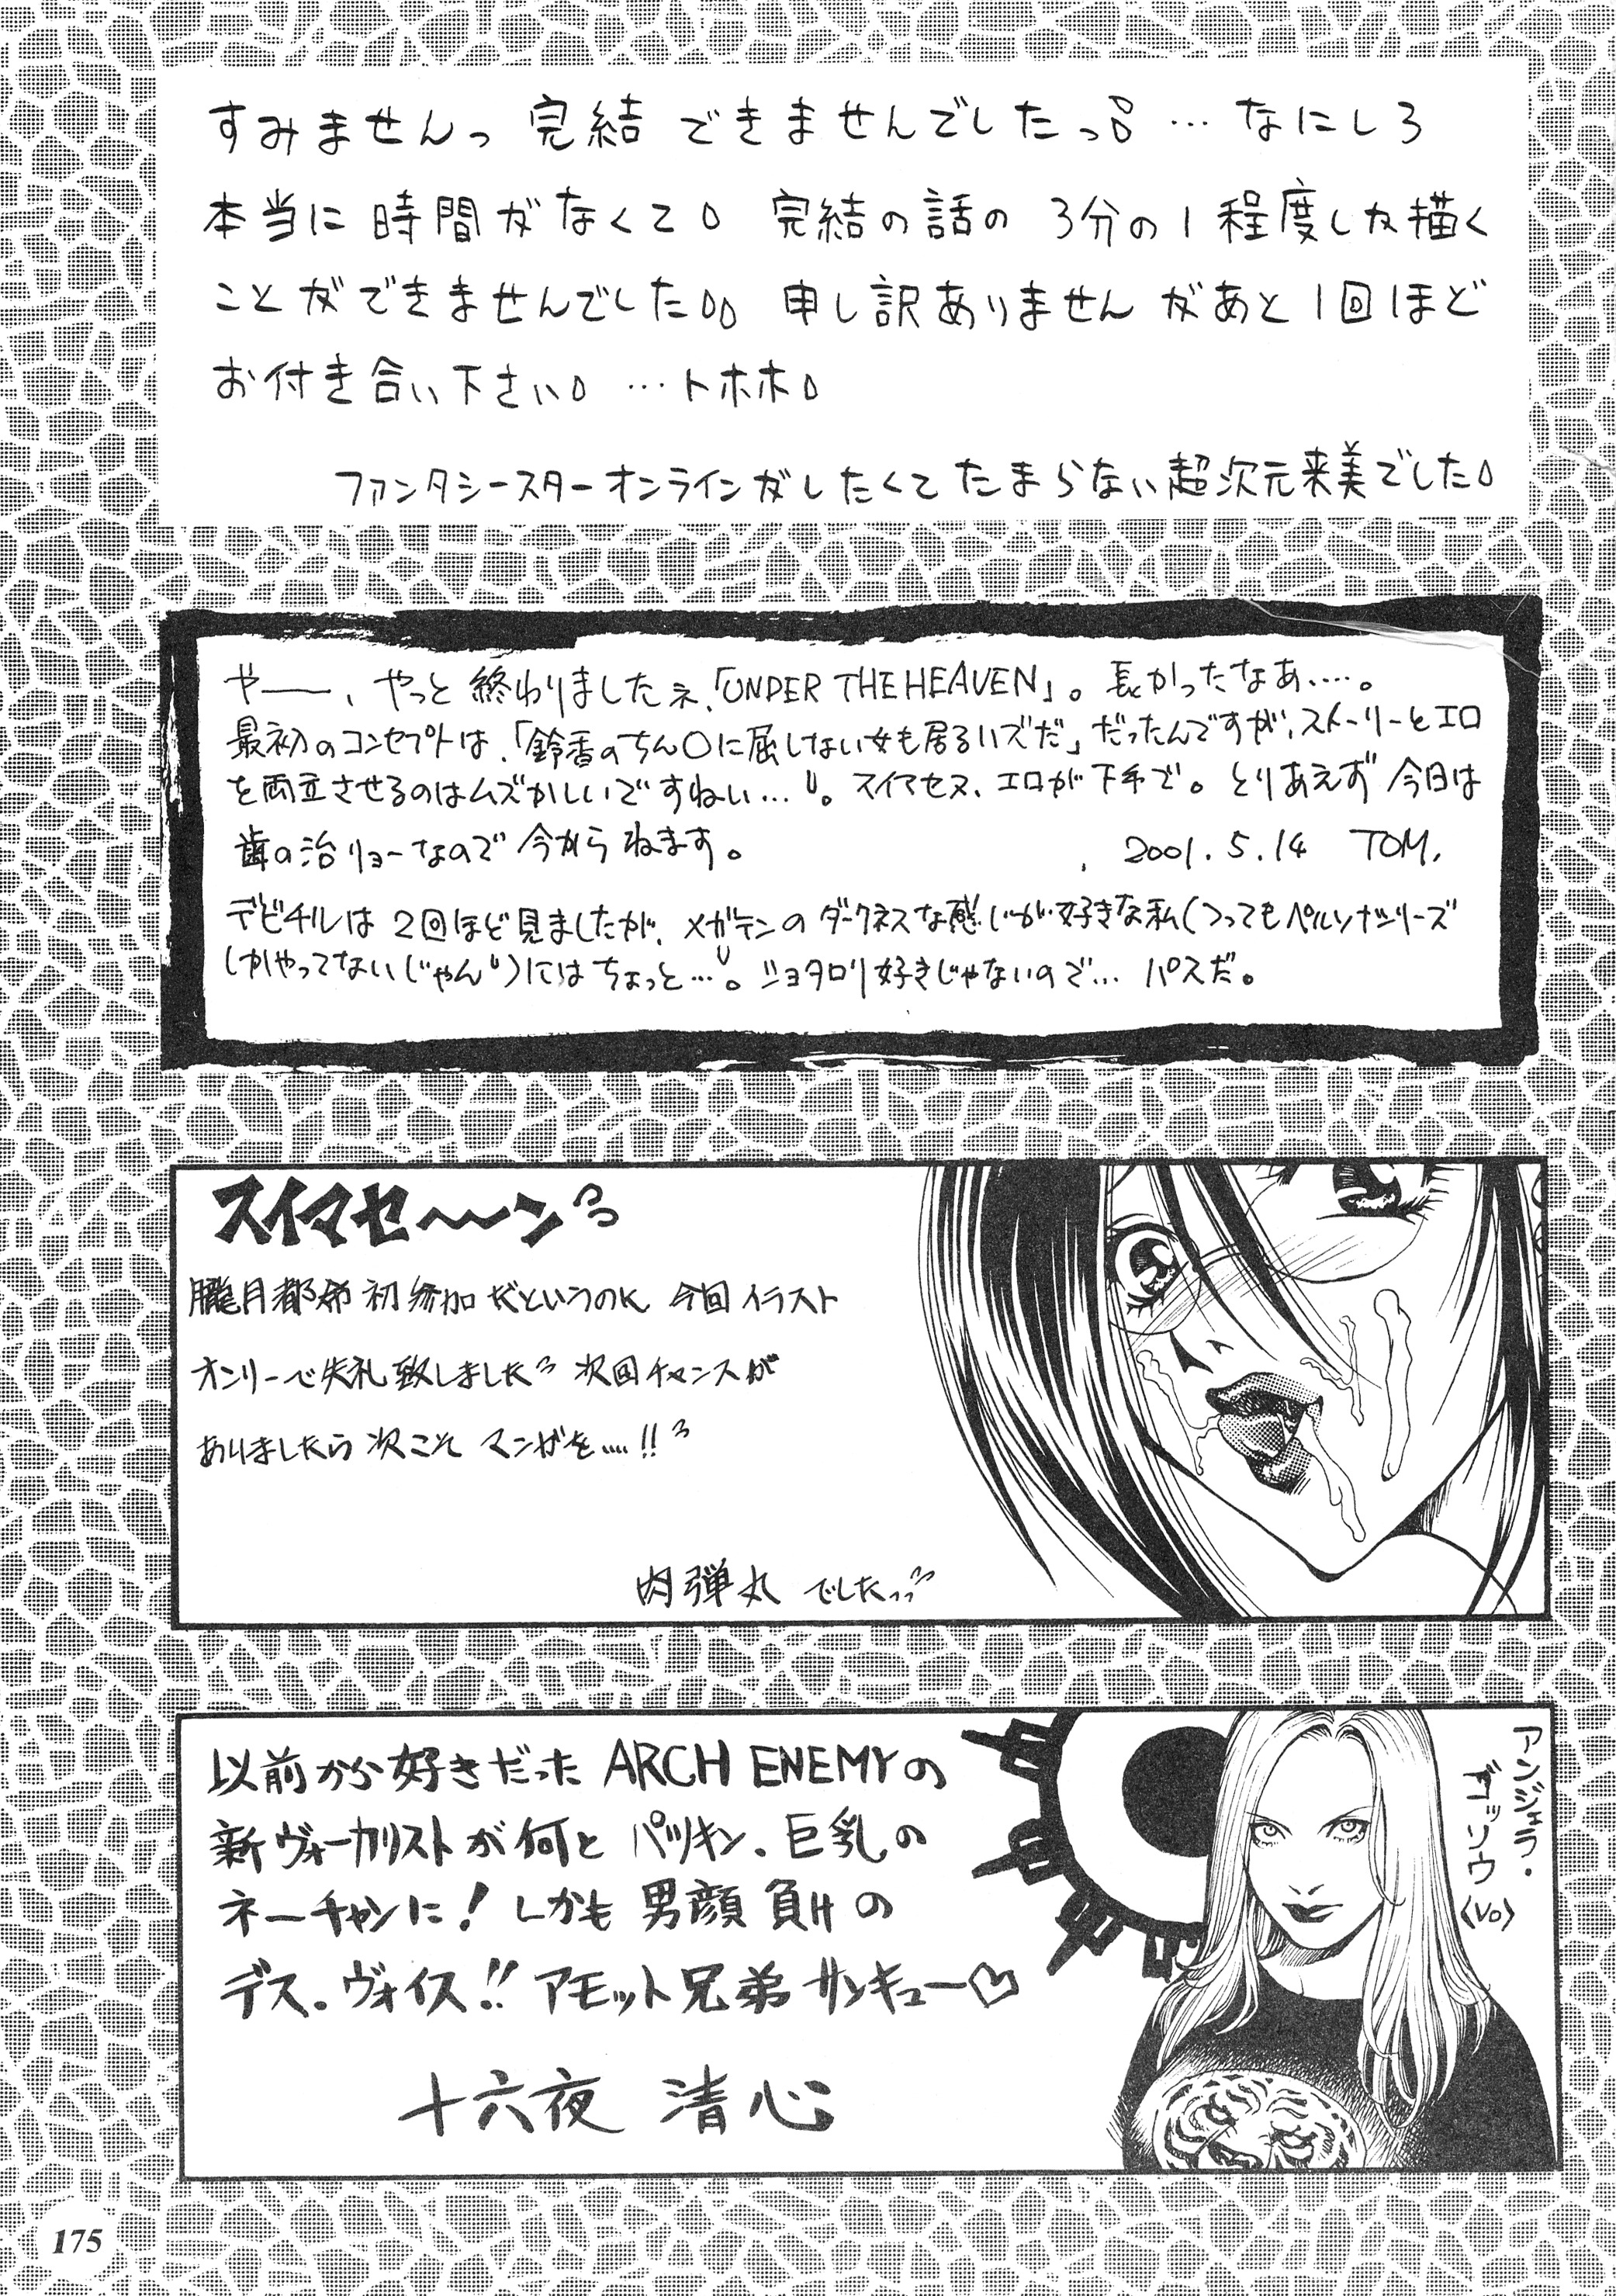 すみませんっ 完結 できませんでしたっ … なにしろ
本当に 時間がなくて。 完結の話の 3分の1程度しか描く
ことができませんでした。。 申し訳ありませんがあと1回ほど
お付き合い下さい。 …トホホ。
ファンタシースターオンラインがしたくてたまらない超次元来美でした。
や——、やっと終わりましたネ、「UNDER THE HEAVEN」。長かったなあ‥‥。
最初のコンセプトは、「鈴香のちん○に屈しない女も居るハズだ」だったんですが、ストーリーとエロ
を両立させるのはムズかしいですねい…。スイマセヌ、エロが下手で。とりあえず今日は
歯の治リョーなので今からねます。
2001.5.14 TOM.
デビチルは2回ほど見ましたが、メガテンのダークネスな感じが好きな私(つってもペルソナシリーズ
しかやってないじゃん)にはちょっと…。ショタロリ好きじゃないので… パスだ。
スイマセ〜〜ン
朧月都希初参加だというのに 今回イラスト
オンリーで失礼致しました 次回チャンスが
ありましたら次こそマンガを‥‥!!
肉弾丸 でしたっ
以前から好きだった ARCH ENEMYの
新ヴォーカリストが何とパツキン、巨乳の
ネーチャンに! しかも男顔負けの
デス・ヴォイス!! アモット兄弟サンキュー♡
十六夜 清心
アンジェラ・
ゴッソウ
〈Vo〉
175